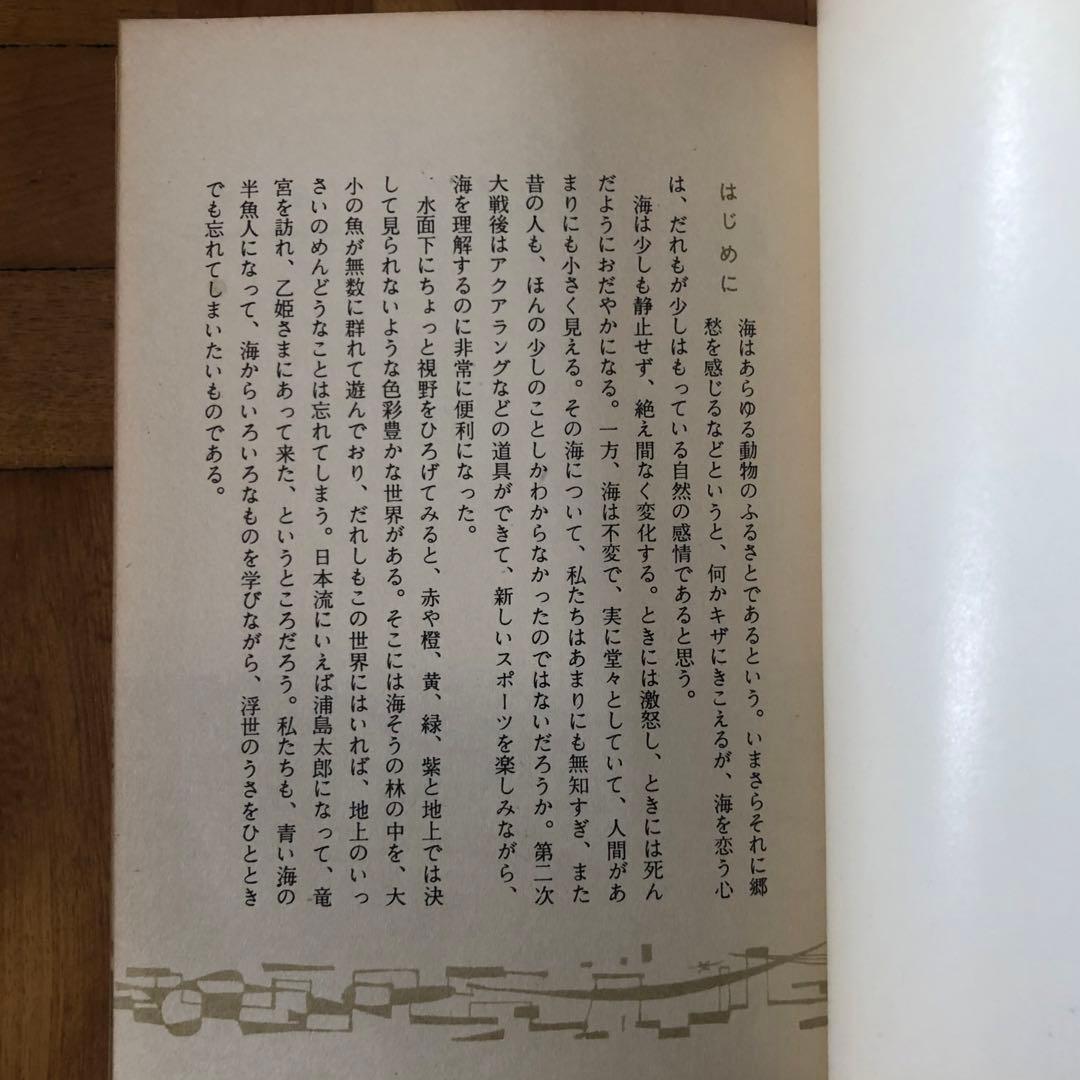 はじめに
海はあらゆる動物のふるさとであるという。いまさらそれに郷
愁を感じるなどというと、何かキザにきこえるが、海を恋う心
は、だれもが少しはもっている自然の感情であると思う。
海は少しも静止せず、絶え間なく変化する。ときには激怒し、ときには死ん
だようにおだやかになる。一方、海は不変で、実に堂々としていて、人間があ
まりにも小さく見える。その海について、私たちはあまりにも無知すぎ、また
昔の人も、ほんの少しのことしかわからなかったのではないだろうか。第二次
大戦後はアクアラングなどの道具ができて、新しいスポーツを楽しみながら、
海を理解するのに非常に便利になった。
水面下にちょっと視野をひろげてみると、赤や橙、黄、緑、紫と地上では決
して見られないような色彩豊かな世界がある。そこには海そうの林の中を、大
小の魚が無数に群れて遊んでおり、だれしもこの世界にはいれば、地上のいっ
さいのめんどうなことは忘れてしまう。日本流にいえば浦島太郎になって、竜
宮を訪れ、乙姫さまにあって来た、というところだろう。私たちも、青い海の
半魚人になって、海からいろいろなものを学びながら、浮世のうさをひととき
でも忘れてしまいたいものである。